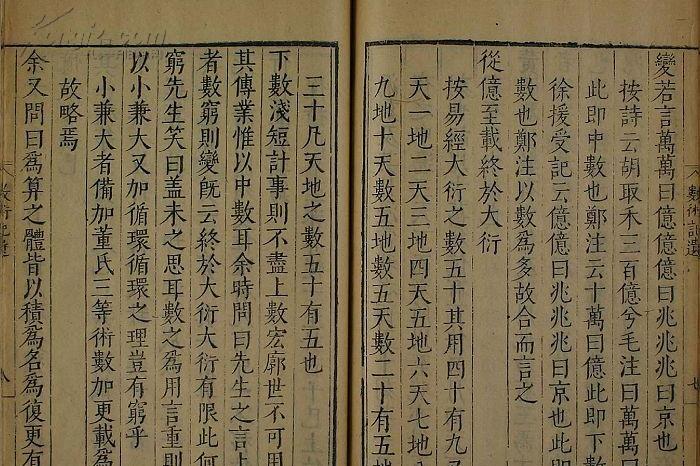 數術記遺
變若言萬萬曰億億億曰兆兆兆曰京也
按詩云胡取禾三百億兮毛注曰萬萬
此即中數也鄭注云十萬曰億此即下數
徐援受記云億億曰兆兆兆曰京也此即
數也鄭注以數爲多故合而言之
從億至載終於大衍
按易經大衍之數五十其用四十有九又
天一地二天三地四天五地六天七地
九地十天數五地數五天數二十有五地
三十凡天地之數五十有五也
下數淺短計事則不盡上數宏廓世不可用
其傳業惟以中數耳余時問曰先生之言上
者數窮則變旣云終於大衍大衍有限此何
窮先生笑曰盖未之思耳數之爲用言重則
以小兼大又加循環循環之理豈有窮乎
小兼大者備加董氏三等術數加更載爲
故略焉
余又問曰爲算之體皆以積爲名爲復更有
數術記遺
八